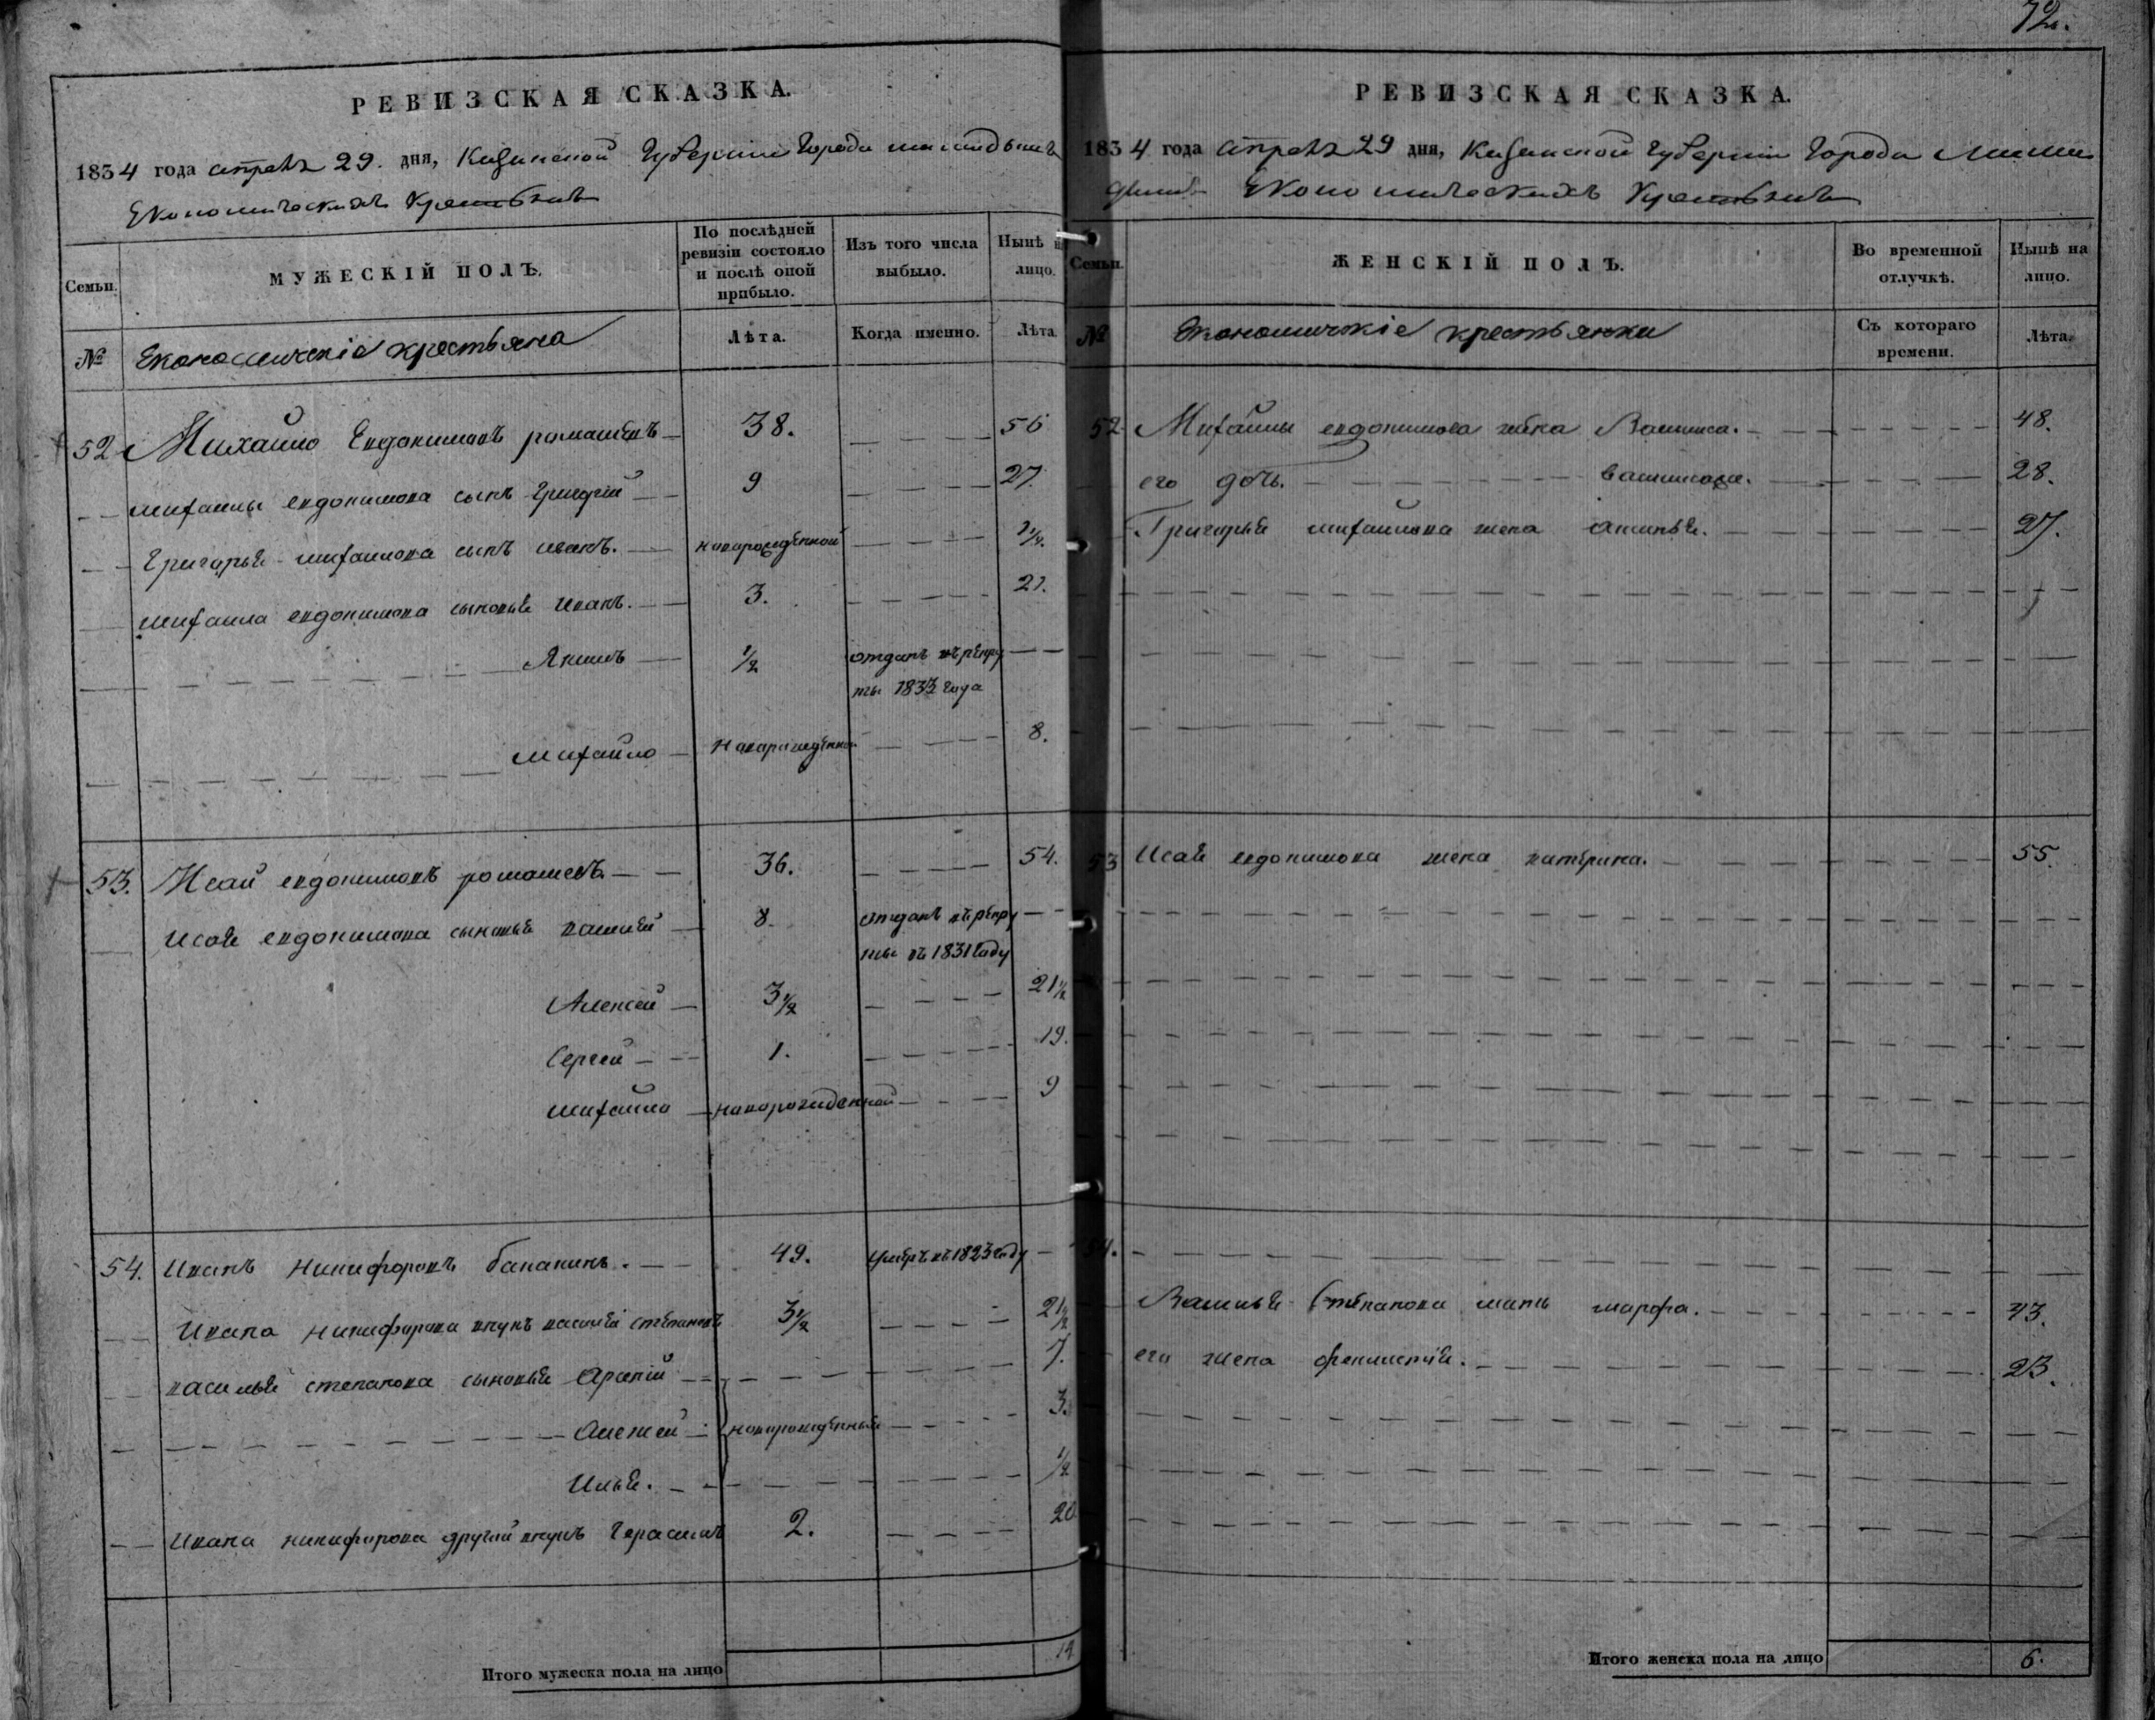 РЕВИЗСКАЯ СКАЗКА.
1834 года апреля 29. дня, Казанской Губернии Города
Економическихъ Крестьянъ
Семьи.
МУЖЕСКІЙ ПОЛЪ.
По послѣдней
ревизіи состояло
и послѣ оной
прибыло.
Изъ того числа
выбыло.
Нынѣ н
лицо.
№
Економическіе крестьяна
Лѣта.
Когда именно.
Лѣта
52 Михайло Евдокимовъ ромашевъ 38. 56
михаилы евдокимова сынъ Григорий 9 27
Григорья михаилова сынъ иванъ. новорожденной 1/4.
михаила евдокимова сыновья иванъ. 3. 21.
Якимъ 1/2 отданъ въ рекру
ты года
михайло 8.
53. Исай евдокимовъ ромашевъ 36. 54.
Исая евдокимова сыновья василий 8. отданъ въ рекру
ты въ 1831 Году
Алексей 3 1/2 21 1/2
Сергей 1. 19.
михаило новорожденной 9
54. Иванъ Никифоровъ 49. умеръ въ 1823 году
Ивана никифорова внукъ василий степановъ 3 1/2 21 1/2
василья степанова сыновья Арсений 7.
Алексей новорожденныя 3.
Илья. 1/2
Ивана никифорова другой внукъ Герасимъ 2. 20
Итого мужеска пола на лицо 14
72.
РЕВИЗСКАЯ СКАЗКА.
1834 года апреля 29 дня, Казанской Губернии Города
Економическихъ Крестьянъ
Семьи.
ЖЕНСКІЙ ПОЛЪ.
Во временной
отлучкѣ.
Нынѣ на
лицо.
№
Економическіе крестьянки
Съ котораго
времени.
Лѣта.
52 Михайлы евдокимова жена Василиса. 48.
его дочь. василиса. 28.
Григорья михайлова жена 27.
53 Исая евдокимова жена катерина. 55.
54.
Василья Степанова мать марфа. 43.
его жена феклистия. 23.
Итого женска пола на лицо 6.